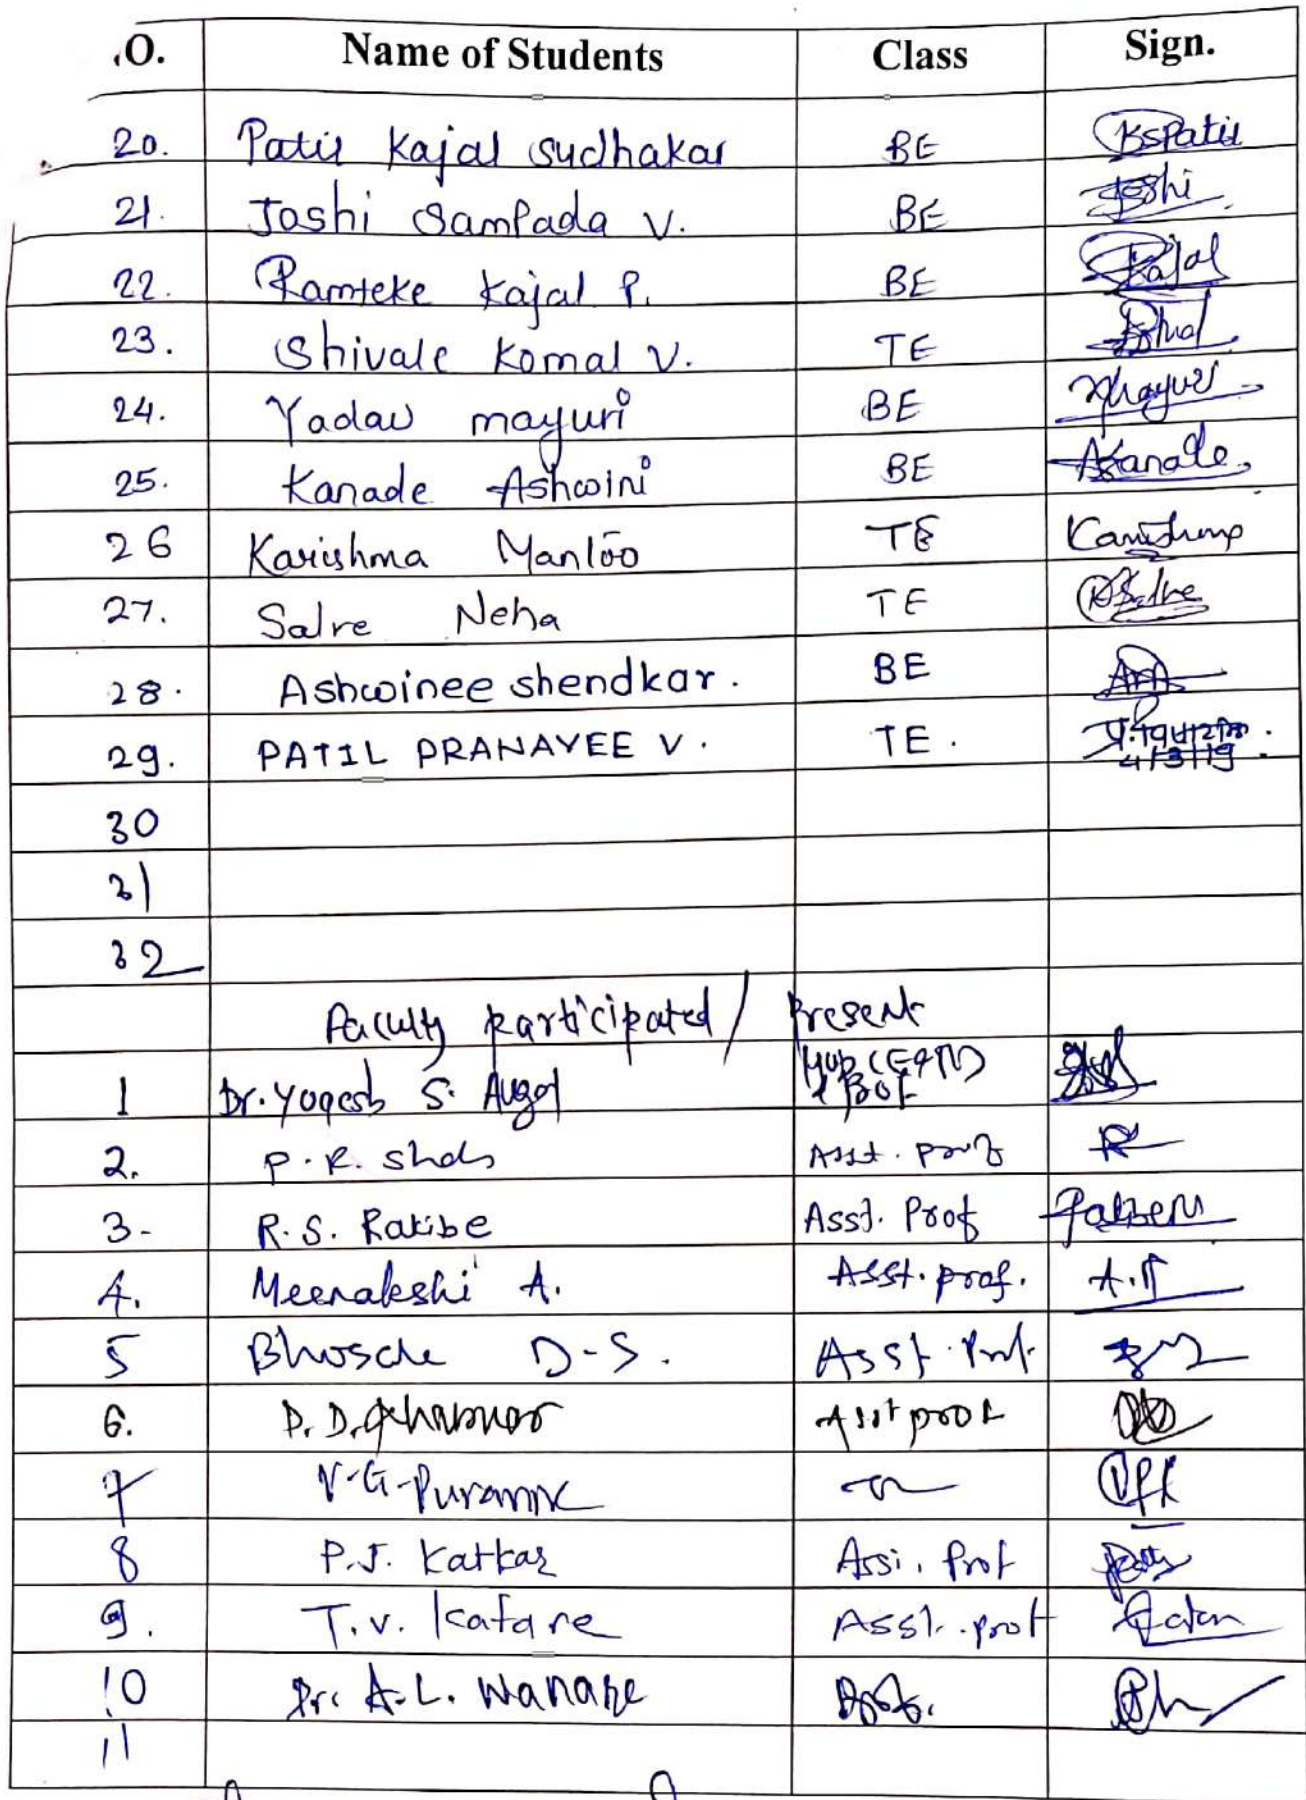 .O. Name of Students Class Sign.
20. Patil Kajal Sudhakar BE KSPatil
21. Joshi Sampada V. BE Joshi
22. Ramteke Kajal P. BE Kajal
23. Shivale Komal V. TE
24. Yadav mayuri BE Mayuri
25. Kanade Ashwini BE AKanade
26 Karishma Manloo TE
27. Salve Neha TE
28. Ashwinee shendkar. BE
29. PATIL PRANAYEE V. TE.
4/3/19
30
31
32
Faculty participated / Present
1 Dr. Yogesh S. HOD (E&TC)
& Prof
2. P. R. Asst. prof
3- R. S. Asst. Prof
4. Meenakshi A. Asst. prof. A.
5 Bhosale D-S. Asst. Prof.
6. D. D. Asst prof
7 V-G-Puranik
8 P.J. Katkar Assi. Prof
9. T.V. Kafare Asst. prof
10 Dr. A.L. Wanare Prof.
11